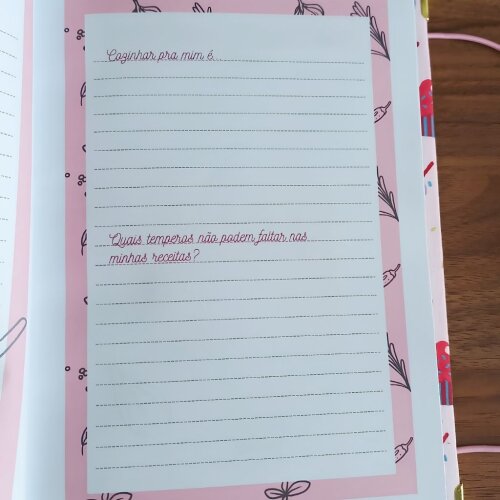 Cozinhar pra mim é...
Quais temperos não podem faltar nas
minhas receitas?